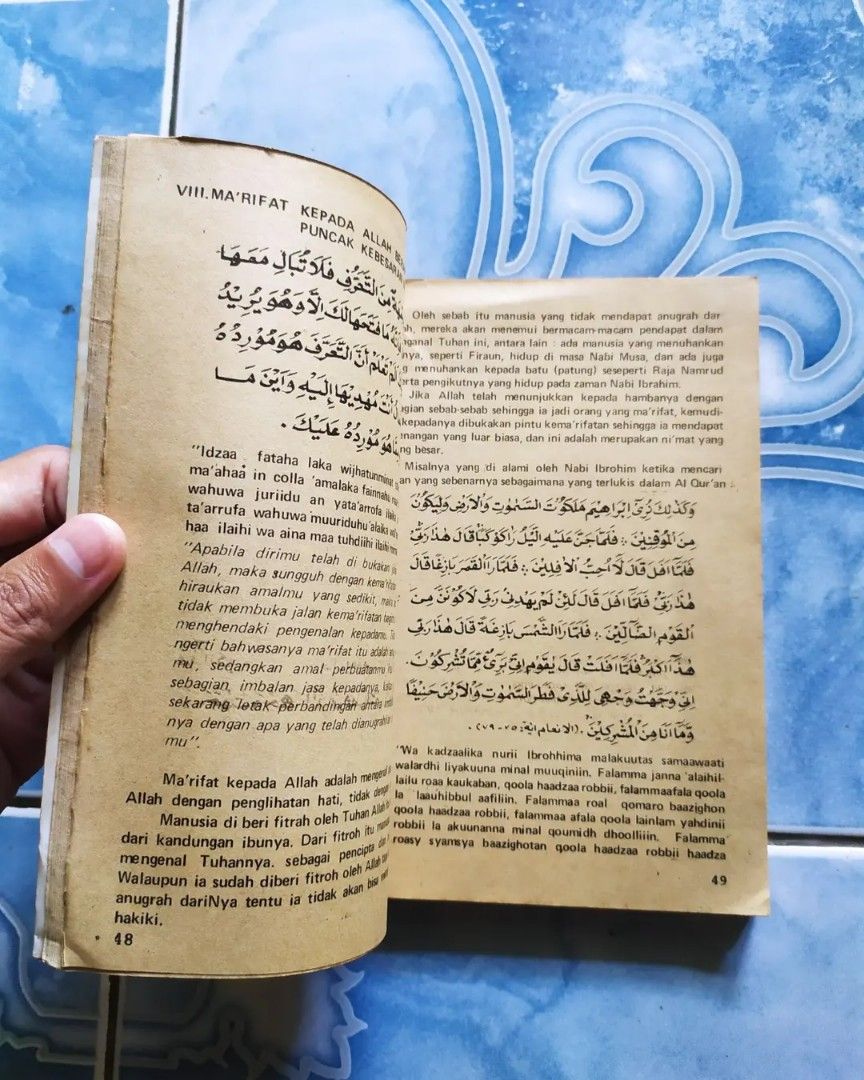 VIII.MA'RIFAT KEPADA ALLAH
PUNCAK
مِنَ التَّعَرُّفِ فَلَا تُبَالِ مَعَهَا
مَا فَتَحَهَا لَكَ إِلَّا وَهُوَ يُرِيْدُ
تَعْلَمْ أَنَّ التَّعَرُّفَ هُوَ مُوْرِدُهُ
أَنْتَ مُهْدِيْهَا إِلَيْهِ وَأَيْنَ مَا
هُوَ مُوْرِدُهُ عَلَيْكَ .
"Idzaa fataha laka
ma'ahaa in colla 'amalaka fainnahu
wahuwa juriidu an yata'arrofa
ta'arrufa wahuwa muuriduhu 'alaika
haa ilaihi wa aina maa tuhdiihi ilaihi
"Apabila dirimu telah di bukakan
Allah, maka sungguh dengan
hiraukan amalmu yang sedikit,
tidak membuka jalan kema'rifatan
menghendaki pengenalan kepadamu.
ngerti bahwasanya ma'rifat itu adalah
mu, sedangkan amal perbuatanmu
sebagian imbalan jasa kepadanya,
sekarang letak perbandingan antara
nya dengan apa yang telah
mu".
Ma'rifat kepada Allah adalah
Allah dengan penglihatan hati, tidak
Manusia di beri fitrah oleh Tuhan Allah
dari kandungan ibunya. Dari fitroh itu
mengenal Tuhannya. sebagai pencipta
Walaupun ia sudah diberi fitroh oleh Allah
anugrah dariNya tentu ia tidak akan bisa
hakiki.
48
Oleh sebab itu manusia yang tidak mendapat anugrah dar
mereka akan menemui bermacam-macam pendapat dalam
Tuhan ini, antara lain : ada manusia yang menuhankan
seperti Firaun, hidup di masa Nabi Musa, dan ada juga
menuhankan kepada batu (patung) seseperti Raja Namrud
pengikutnya yang hidup pada zaman Nabi Ibrahim.
Jika Allah telah menunjukkan kepada hambanya dengan
sebab-sebab sehingga ia jadi orang yang ma'rifat, kemudi-
kepadanya dibukakan pintu kema'rifatan sehingga ia mendapat
yang luar biasa, dan ini adalah merupakan ni'mat yang
besar.
Misalnya yang di alami oleh Nabi Ibrohim ketika mencari
yang sebenarnya sebagaimana yang terlukis dalam Al Qur'an :
وَكَذٰلِكَ نُرِيْ اِبْرَاهِيْمَ مَلَكُوْتَ السَّمٰوٰتِ وَالْاَرْضِ وَلِيَكُوْنَ
مِنَ الْمُوْقِنِيْنَ ۞ فَلَمَّا جَنَّ عَلَيْهِ الَّيْلُ رَاٰ كَوْكَبًا قَالَ هٰذَا رَبِّيْ
فَلَمَّا اَفَلَ قَالَ لَا اُحِبُّ الْاٰفِلِيْنَ ۞ فَلَمَّا رَاَ الْقَمَرَ بَازِغًا قَالَ
هٰذَا رَبِّيْ فَلَمَّا اَفَلَ قَالَ لَئِنْ لَمْ يَهْدِنِيْ رَبِّيْ لَاَكُوْنَنَّ مِنَ
الْقَوْمِ الضَّآلِّيْنَ ۞ فَلَمَّا رَاَ الشَّمْسَ بَازِغَةً قَالَ هٰذَا رَبِّيْ
هٰذَا اَكْبَرُ فَلَمَّا اَفَلَتْ قَالَ يٰقَوْمِ اِنِّيْ بَرِيْءٌ مِّمَّا تُشْرِكُوْنَ .
اِنِّيْ وَجَّهْتُ وَجْهِيَ لِلَّذِيْ فَطَرَ السَّمٰوٰتِ وَالْاَرْضَ حَنِيْفًا
وَمَا اَنَا مِنَ الْمُشْرِكِيْنَ . (الانعام اية: ٧٥-٧٩).
"Wa kadzaalika nurii Ibrohhima malakuutas samaawaati
walardhi liyakuuna minal muuqiniin. Falamma janna 'alaihil-
lailu roaa kaukaban, qoola haadzaa robbii, falammaafala qoola
la 'laauhibbul aafiliin. Falammaa roal qomaro baazighon
qoola haadzaa robbii, falammaa afala qoola lainlam yahdinii
robbii la akuunanna minal qoumidh dhoolliiin. Falamma
roasy syamsya baazighotan qoola haadzaa robbii haadza
49